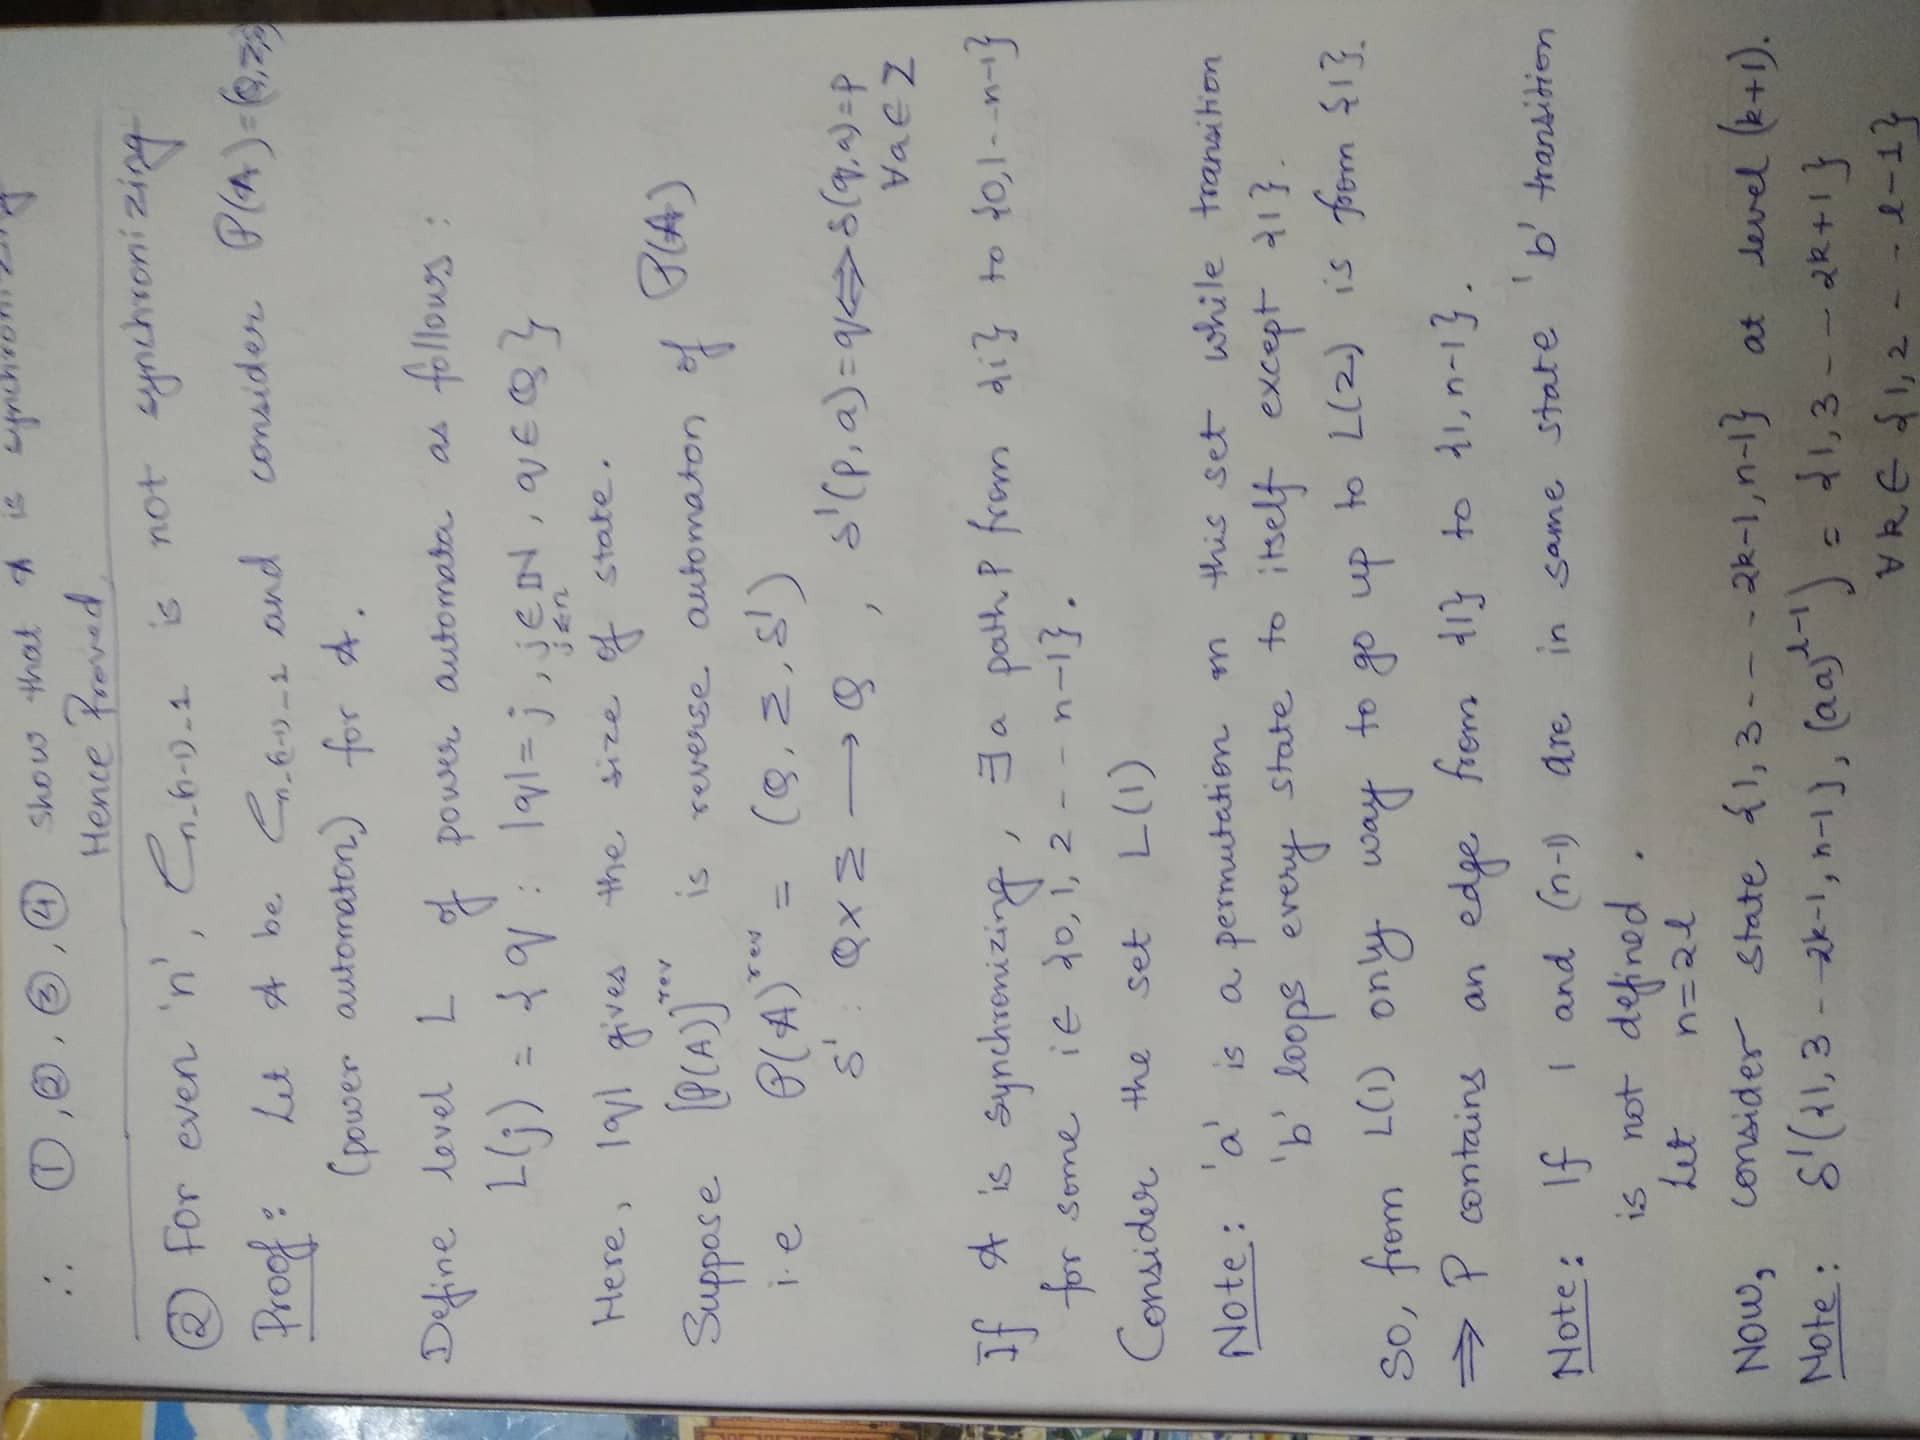 ∴ ①, ②, ③, ④ show that A is synchronizing
Hence Proved.
② For even 'n', C_{n-(n-1)-1} is not synchronizing
Proof: Let A be C_{n-(n-1)-1} and consider P(A)=(Q,Σ,δ)
(power automaton) for A.
Define level L of power automata as follows:
L(j) = { q : |q| = j, j ∈ ℕ, q ∈ Q }
j ≤ n
Here, |q| gives the size of state.
Suppose [P(A)]^rev is reverse automaton of P(A)
i.e P(A)^rev = (Q, Σ, δ')
δ' : Q × Σ → Q , δ'(p,a)=q ⟺ δ(q,a)=p
∀ a ∈ Σ
If A is synchronizing, ∃ a path P from {i} to {0,1--n-1}
for some i ∈ {0,1,2--n-1}.
Consider the set L(1)
Note: 'a' is a permutation on this set while transition
'b' loops every state to itself except {1}.
So, from L(1) only way to go up to L(2) is from {1}.
⟹ P contains an edge from {1} to {1,n-1}.
Note: If 1 and (n-1) are in same state 'b' transition
is not defined.
Let n=2l
Now, consider state {1,3---2k-1,n-1} at level (k+1).
Note: δ'({1,3--2k-1,n-1}, (aa)^{l-1}) = {1,3--2k+1}
∀ k ∈ {1,2--l-1}